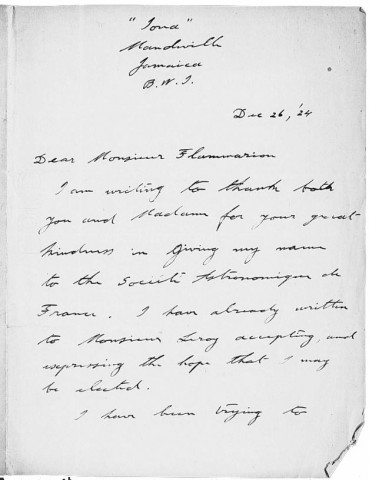 "Iona"
Mandeville
Jamaica
B.W.I.
Dec 26, '24
Dear Monsieur Flammarion
I am writing to thank both
you and Madame for your great
kindness in giving my name
to the Société Astronomique de
France. I have already written
to Monsieur Leroy accepting, and
expressing the hope that I may
be elected.
I have been trying to